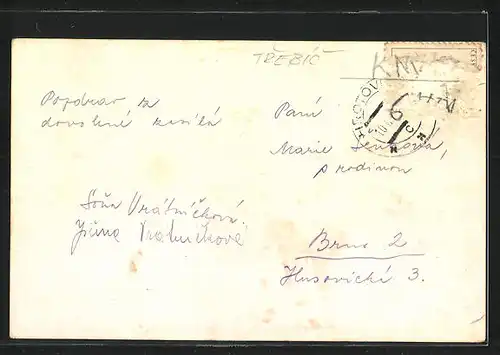 TŘEBÍČ
Pozdrav z
dovolené zasílá
Soňa Vrátníčková.
Jiřina Vratničková
Paní
Marie
s rodinou
Brno 2
Husovická 3.